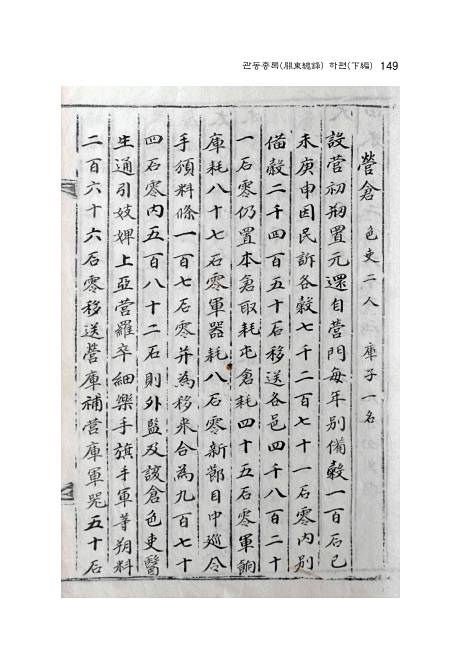 관동총록(關東總錄) 하편(下編) 149
營倉 色吏二人 庫子一名
設营初刱置元還自營門每年別備穀一百石已
未庚申因民訴各穀七千二百七十一石零內別
備穀二千四百五十石移送各邑四千八百二十
一石零仍置本倉取耗屯倉耗四十五石零軍餉
庫耗八十七石零軍器耗八石零新鄼目中巡令
手頒料條一百七石零并為移来合為九百七十
四石零內五百八十二石則外監及該倉色吏醫
生通引妓婢上亞营羅卒細樂手旗手軍等朔料
二百六十六石零移送營庫補营庫軍器五十石